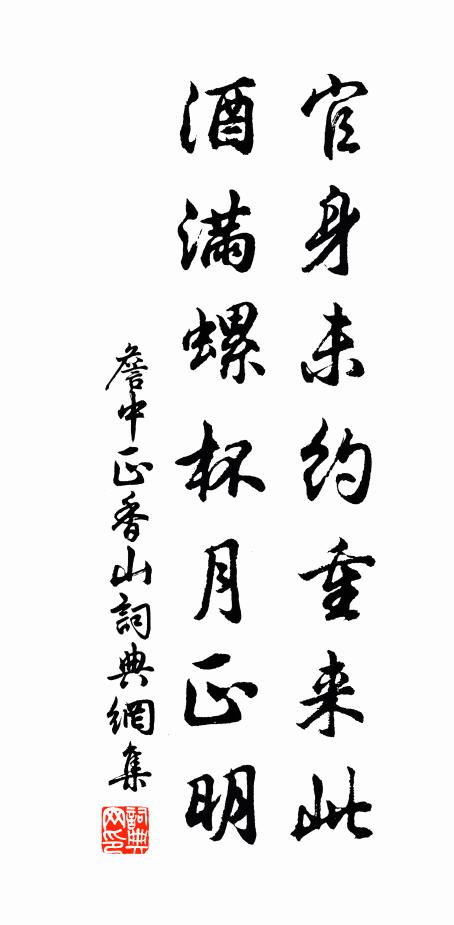 官身未約重来此
酒滿螺杯月正明
詹中正香山詞典網集
詞典网印